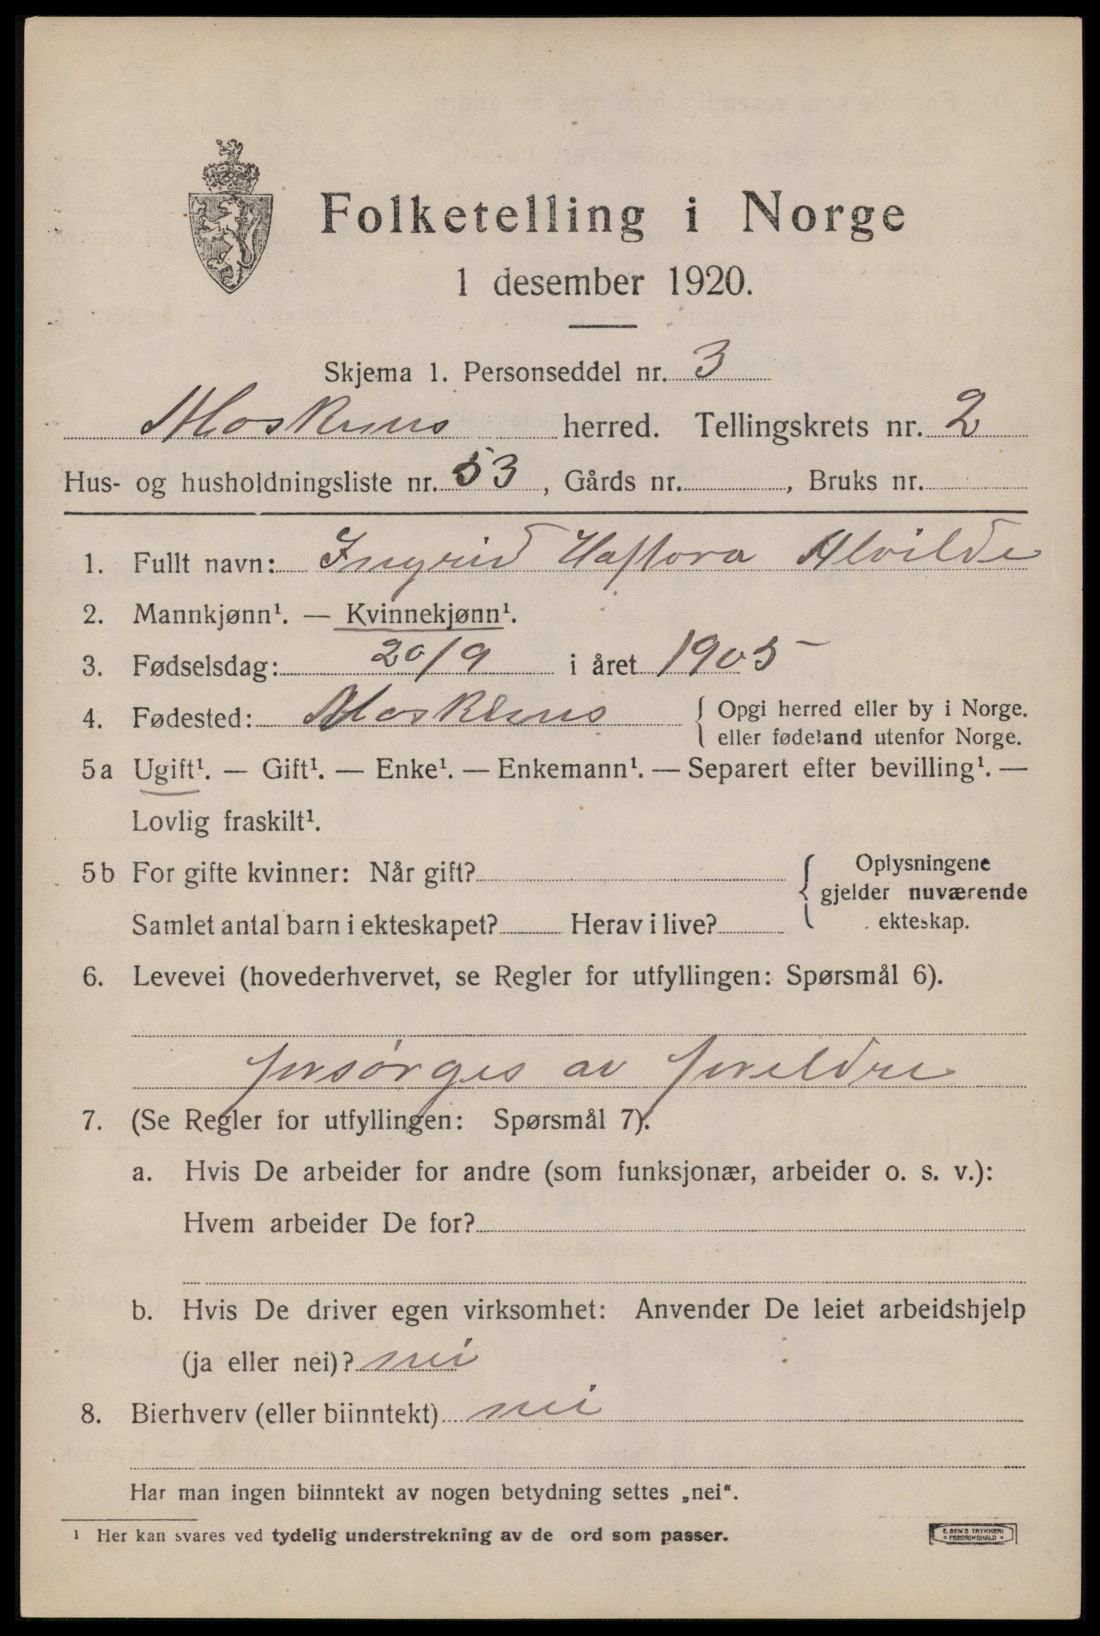 Folketelling i Norge
1 desember 1920.
Skjema 1. Personseddel nr. 3
Moskenes herred. Tellingskrets nr. 2
Hus- og husholdningsliste nr. 53, Gårds nr. , Bruks nr.
1. Fullt navn: Ingrid Haftora Alvilde
2. Mannkjønn¹. — Kvinnekjønn¹.
3. Fødselsdag: 20/9 i året 1905
4. Fødested: Moskenes { Opgi herred eller by i Norge.
eller fødeland utenfor Norge.
5a Ugift¹. — Gift¹. — Enke¹. — Enkemann¹. — Separert efter bevilling¹. —
Lovlig fraskilt¹.
5b For gifte kvinner: Når gift? { Oplysningene
gjelder nuværende
Samlet antal barn i ekteskapet? Herav i live? ekteskap.
6. Levevei (hovederhvervet, se Regler for utfyllingen: Spørsmål 6).
forsørges av foreldre
7. (Se Regler for utfyllingen: Spørsmål 7).
a. Hvis De arbeider for andre (som funksjonær, arbeider o. s. v.):
Hvem arbeider De for?
b. Hvis De driver egen virksomhet: Anvender De leiet arbeidshjelp
(ja eller nei)? nei
8. Bierhverv (eller biinntekt) nei
Har man ingen biinntekt av nogen betydning settes „nei“.
¹ Her kan svares ved tydelig understrekning av de ord som passer.
E. SEM'S TRYKKERI
FREDRIKSHALD